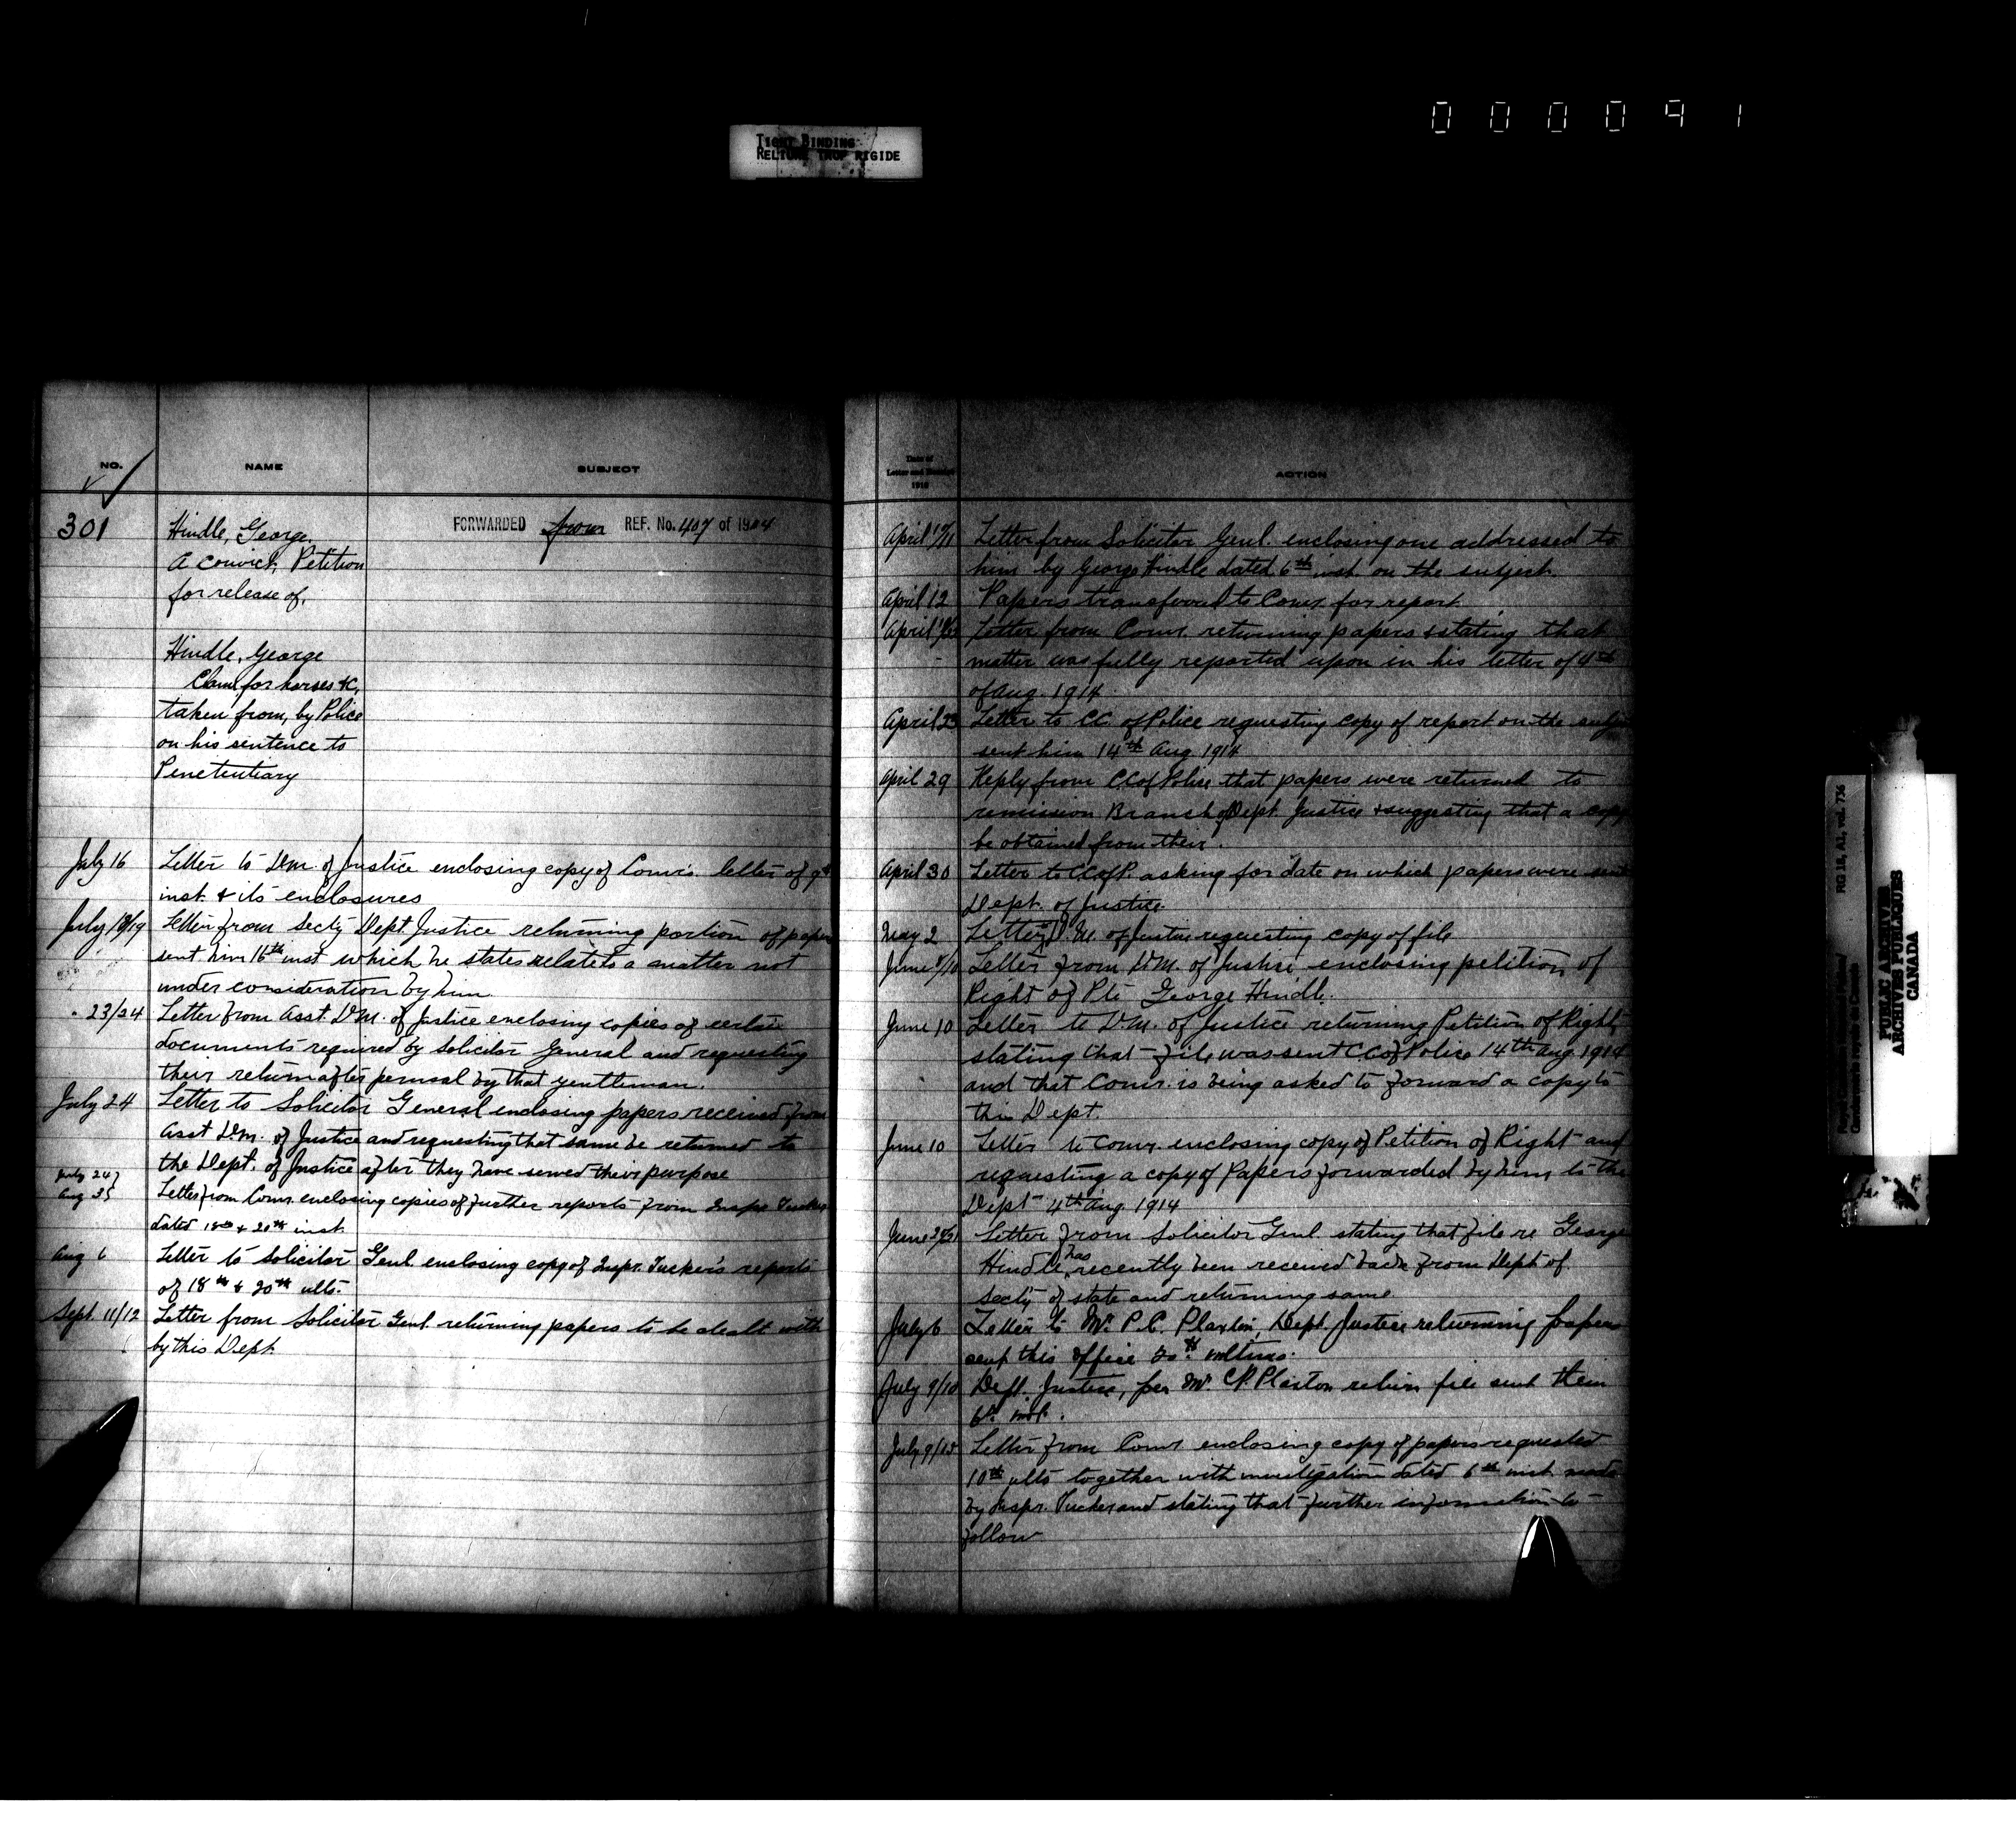 0 0 0 0 9 1
TIGHT BINDING
RELIURE TROP RIGIDE
NO.
NAME
SUBJECT
301
FORWARDED from REF. No. 407 of 1904
Hindle, George.
A convict, Petition
for release of.
Hindle, George
Claim for horses &c,
taken from, by Police
on his sentence to
Penetentiary
July 16 Letter to D.M. of Justice enclosing copy of Comr's letter of 9th
inst. & its enclosures
July 18/19 Letter from Secty Dept. Justice returning portion of papers
sent him 16th inst which he states relates to a matter not
under consideration by him.
" 23/24 Letter from Asst. D.M. of Justice enclosing copies of certain
documents required by Solicitor General and requesting
their return after perusal by that gentleman.
July 24 Letter to Solicitor General enclosing papers received from
Asst D.M. of Justice and requesting that same be returned to
the Dept. of Justice after they have served their purpose
July 24}
Aug 3} Letter from Comr. enclosing copies of further reports from Inspr. Tucker
dated 18th & 20th inst.
Aug 6 Letter to Solicitor Genl. enclosing copy of Inspr. Tucker's reports
of 18th & 20th ulto.
Sept. 11/12 Letter from Solicitor Genl. returning papers to be dealt with
by this Dept.
Date of
Letter and Receipt
191
ACTION
April /11 Letter from Solicitor Genl. enclosing one addressed to
him by George Hindle dated 6th inst. on the subject.
April 12 Papers transferred to Comr. for report
April Letter from Comr. returning papers & stating that
matter was fully reported upon in his letter of 4th
of Aug. 1914
April 23 Letter to CC. of Police requesting copy of report on the subject
sent him 14th Aug 1914
April 29 Reply from CC of Police that papers were returned to
remission Branch of Dept. Justice & suggesting that a copy
be obtained from their.
April 30 Letter to CC of P. asking for date on which papers were sent
Dept. of Justice.
May 2 Letter D.M. of Justice requesting copy of file
June /10 Letter from D.M. of Justice enclosing petition of
Right of Pte George Hindle.
June 10 Letter to D.M. of Justice returning Petition of Right
stating that file was sent CC of Police 14th Aug. 1914
and that Comr. is being asked to forward a copy to
this Dept.
June 10 Letter to Comr. enclosing copy of Petition of Right and
requesting a copy of Papers forwarded by him to the
Dept 4th Aug. 1914
June Letter from Solicitor Genl. stating that file re George
Hindle has recently been received back from Dept of
Secty of State and returning same
July 6 Letter to Mr. P.C. Plaxton, Dept. Justice returning papers
sent this office 30th ultimo.
July 9/10 Dept. Justice, per Mr. C.P. Plaxton return file sent them
6th inst.
July 9/13 Letter from Comr. enclosing copy of papers requested
10th ulto together with investigation dated 6th inst. made
by Inspr. Tucker and stating that further information to
follow
RG 18, A1, vol. 736
PUBLIC ARCHIVES
ARCHIVES PUBLIQUES
CANADA